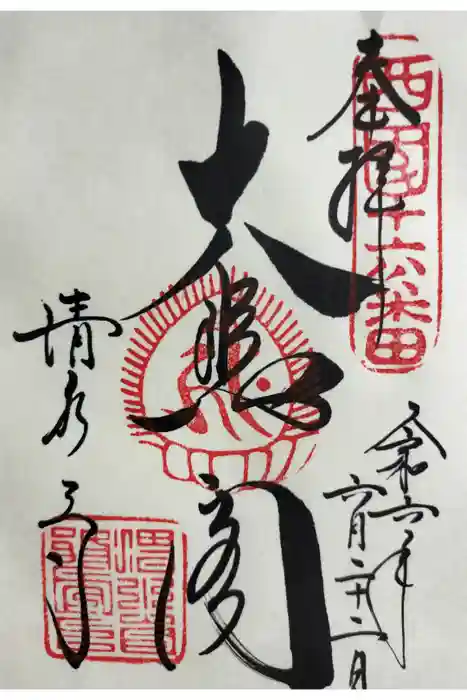 奉拝
西国十六番
大悲閣
清水寺
令和六年
六月二十二日